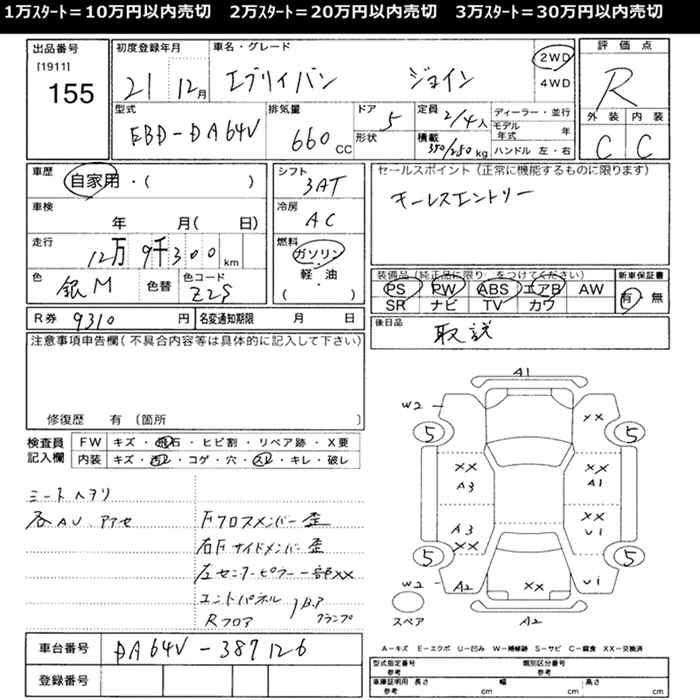 1万ｽﾀｰﾄ＝10万円以内売切　2万ｽﾀｰﾄ＝20万円以内売切　3万ｽﾀｰﾄ＝30万円以内売切
出品番号 初度登録年月 車名・グレード 評価点
[1911]
155 21 12月 エブリイバン ジョイン 2WD R
4WD
型式 排気量 ドア 定員 ディーラー・並行 外装 内装
EBD-DA64V 660CC 5 2/4人 モデル年式 年
形状 積載 350/250kg ハンドル 左・右 C C
車歴 シフト セールスポイント(正常に機能するものに限ります)
自家用・( ) 3AT キーレスエントリー
車検 冷房
年 月( 日) AC
走行 燃料
12万9千300km ガソリン・
軽・油
( )
色 銀M 色替 色コード Z2S
装備品(純正品に限り○をつけてください) 新車保証書
PS PW ABS エアB AW 有・無
SR ナビ TV カワ
R券 9310円 名変通知期限 月 日
後日品 取説
注意事項申告欄(不具合内容等は具体的に記入して下さい)
修復歴 有 〔箇所 〕
検査員記入欄 FW キズ・飛石・ヒビ割・リペア跡・X要
内装 キズ・汚レ・コゲ・穴・スレ・キレ・破レ
シートヘタリ
各AU、アセ Fクロスメンバー歪
右Fサイドメンバー歪
左センターピラー一部XX
エンドパネル
Rフロア クランプ
A1
W2 XX
5 5
XX XX
A3 A1
A3 XX
XX U1
5 5
W2 A2 XX U1
スペア A2
A-キズ E-エクボ U-凹み W-補修跡 S-サビ C-腐食 XX-交換済
車台番号 DA64V-387126
登録番号
型式指定番号 参考 類別区分番号 参考
車庫証明用 長さ 参考 cm 幅 cm 高さ cm